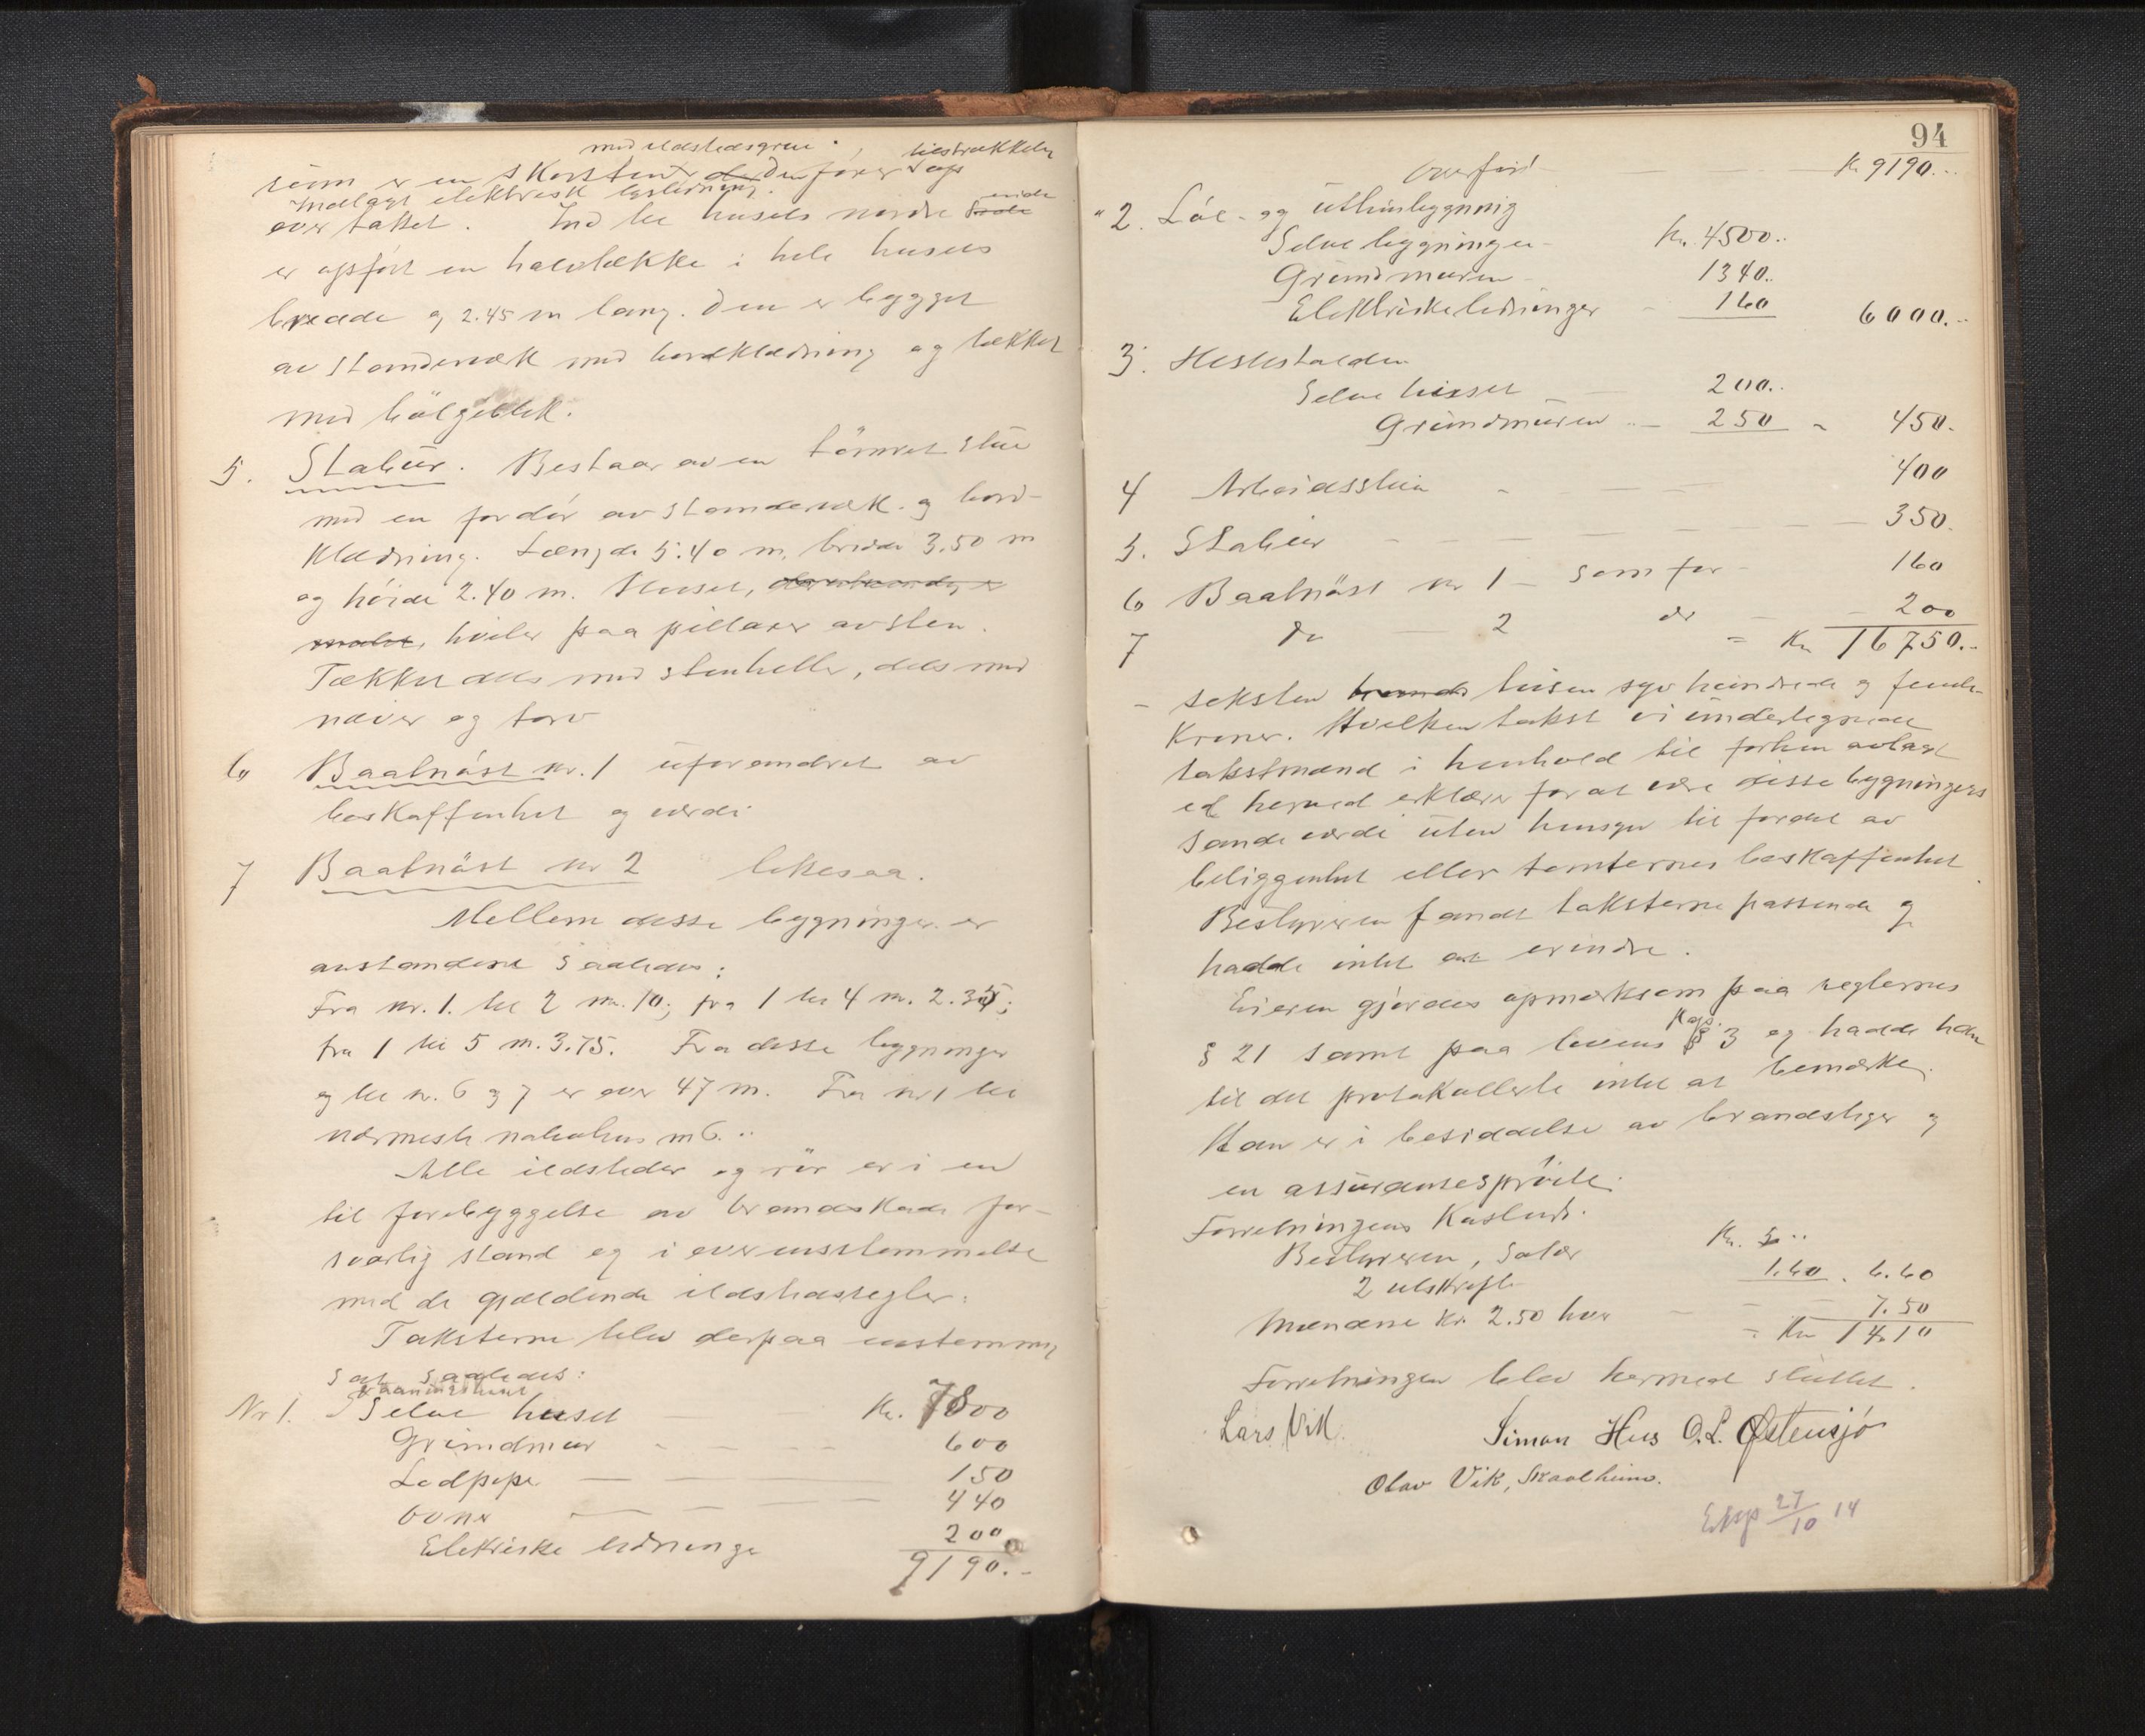 med ildstedsgrue tilstrækkelig
som er en skorsten der den fører op
Indlagt elektrisk lysledning.
over taket. Ind til husets nordre ende
er opført en halvtække i hele husets
bredde og 2.45 m lang. Den er bygget
av stenderværk med bordklædning og tækket
med bölgeblik.
5. Stabür. Bestaar av en tömret stue
med en fordör av stenderværk og bord-
klædning. Længde 5.40 m, bredde 3.50 m
og höide 2.40 m. Huset,
malet, hviler paa pillarer av sten.
Tækket dels med stenheller, dels med
næver og torv
6 Baatnöst nr. 1 uforandret av
beskaffenhet og værdi
7 Baatnöst nr 2 likesaa.
Mellem disse bygninger er
avstandene saaledes:
Fra nr. 1. til 2 m. 10; fra 1 til 4 m. 2.35;
fra 1 til 5 m. 3.75. Fra disse bygninger
og til nr. 6 og 7 er over 47 m. Fra nr 1 til
nærmeste nabohus m 6. ..
Alle ildsteder og rör er i en
til forebyggelse av brandskade for-
svarlig stand og i overensstemmelse
med de gjældende ildstedsregler.
Taksterne blev derpaa enstemmig
sat saaledes:
Vaaningshuset
Nr 1. Selve huset Kr. 7800
Grundmur 600
Ledpipe 150
Ovner 440
Elektriske ledninger 200
9190.-
94
Overfört Kr 9190...
" 2. Löe- og uthusbygning
Selve bygningen Kr. 4500..
Grundmuren 1340..
Elektriske ledninger 160 6000.-
3. Hestestalden
Selve huset 200..
Grundmuren 250 - 450.
4 Arbeidsstua 400
5. Stabür 350.
6 Baatnöst nr 1 - som för 160
7 do 2 do 200
= Kr 16750.-
- seksten tusen syv hundrede og femti-
Kroner. Hvilken takst vi undertegnede
takstmænd i henhold til forhen avlagt
ed herved erklærer for at være disse bygningers
sande værdi uten hensyn til fordel av
beliggenhet eller tomternes beskaffenhet.
Bestyreren fandt taksterne passende og
hadde intet at erindre.
Eieren gjordes opmerksom paa reglernes
Kap.
§ 21 samt paa lovens § 3 og hadde han
til det protokollerte intet at bemerke.
Han er i besiddelse av brandstiger og
en assuransespröite.
Forretningens Kostend:
Bestyreren, Salær Kr. 5..
2 utskrifter 1.60 . 6.60
Mændene kr. 2.50 hver 7.50
= Kr 14.10
Forretningen blev hermed sluttet.
Lars Vik. Simon Hus O. L. Østensjö
Olav Vik, Skaalheim.
Eksp 27/10 14